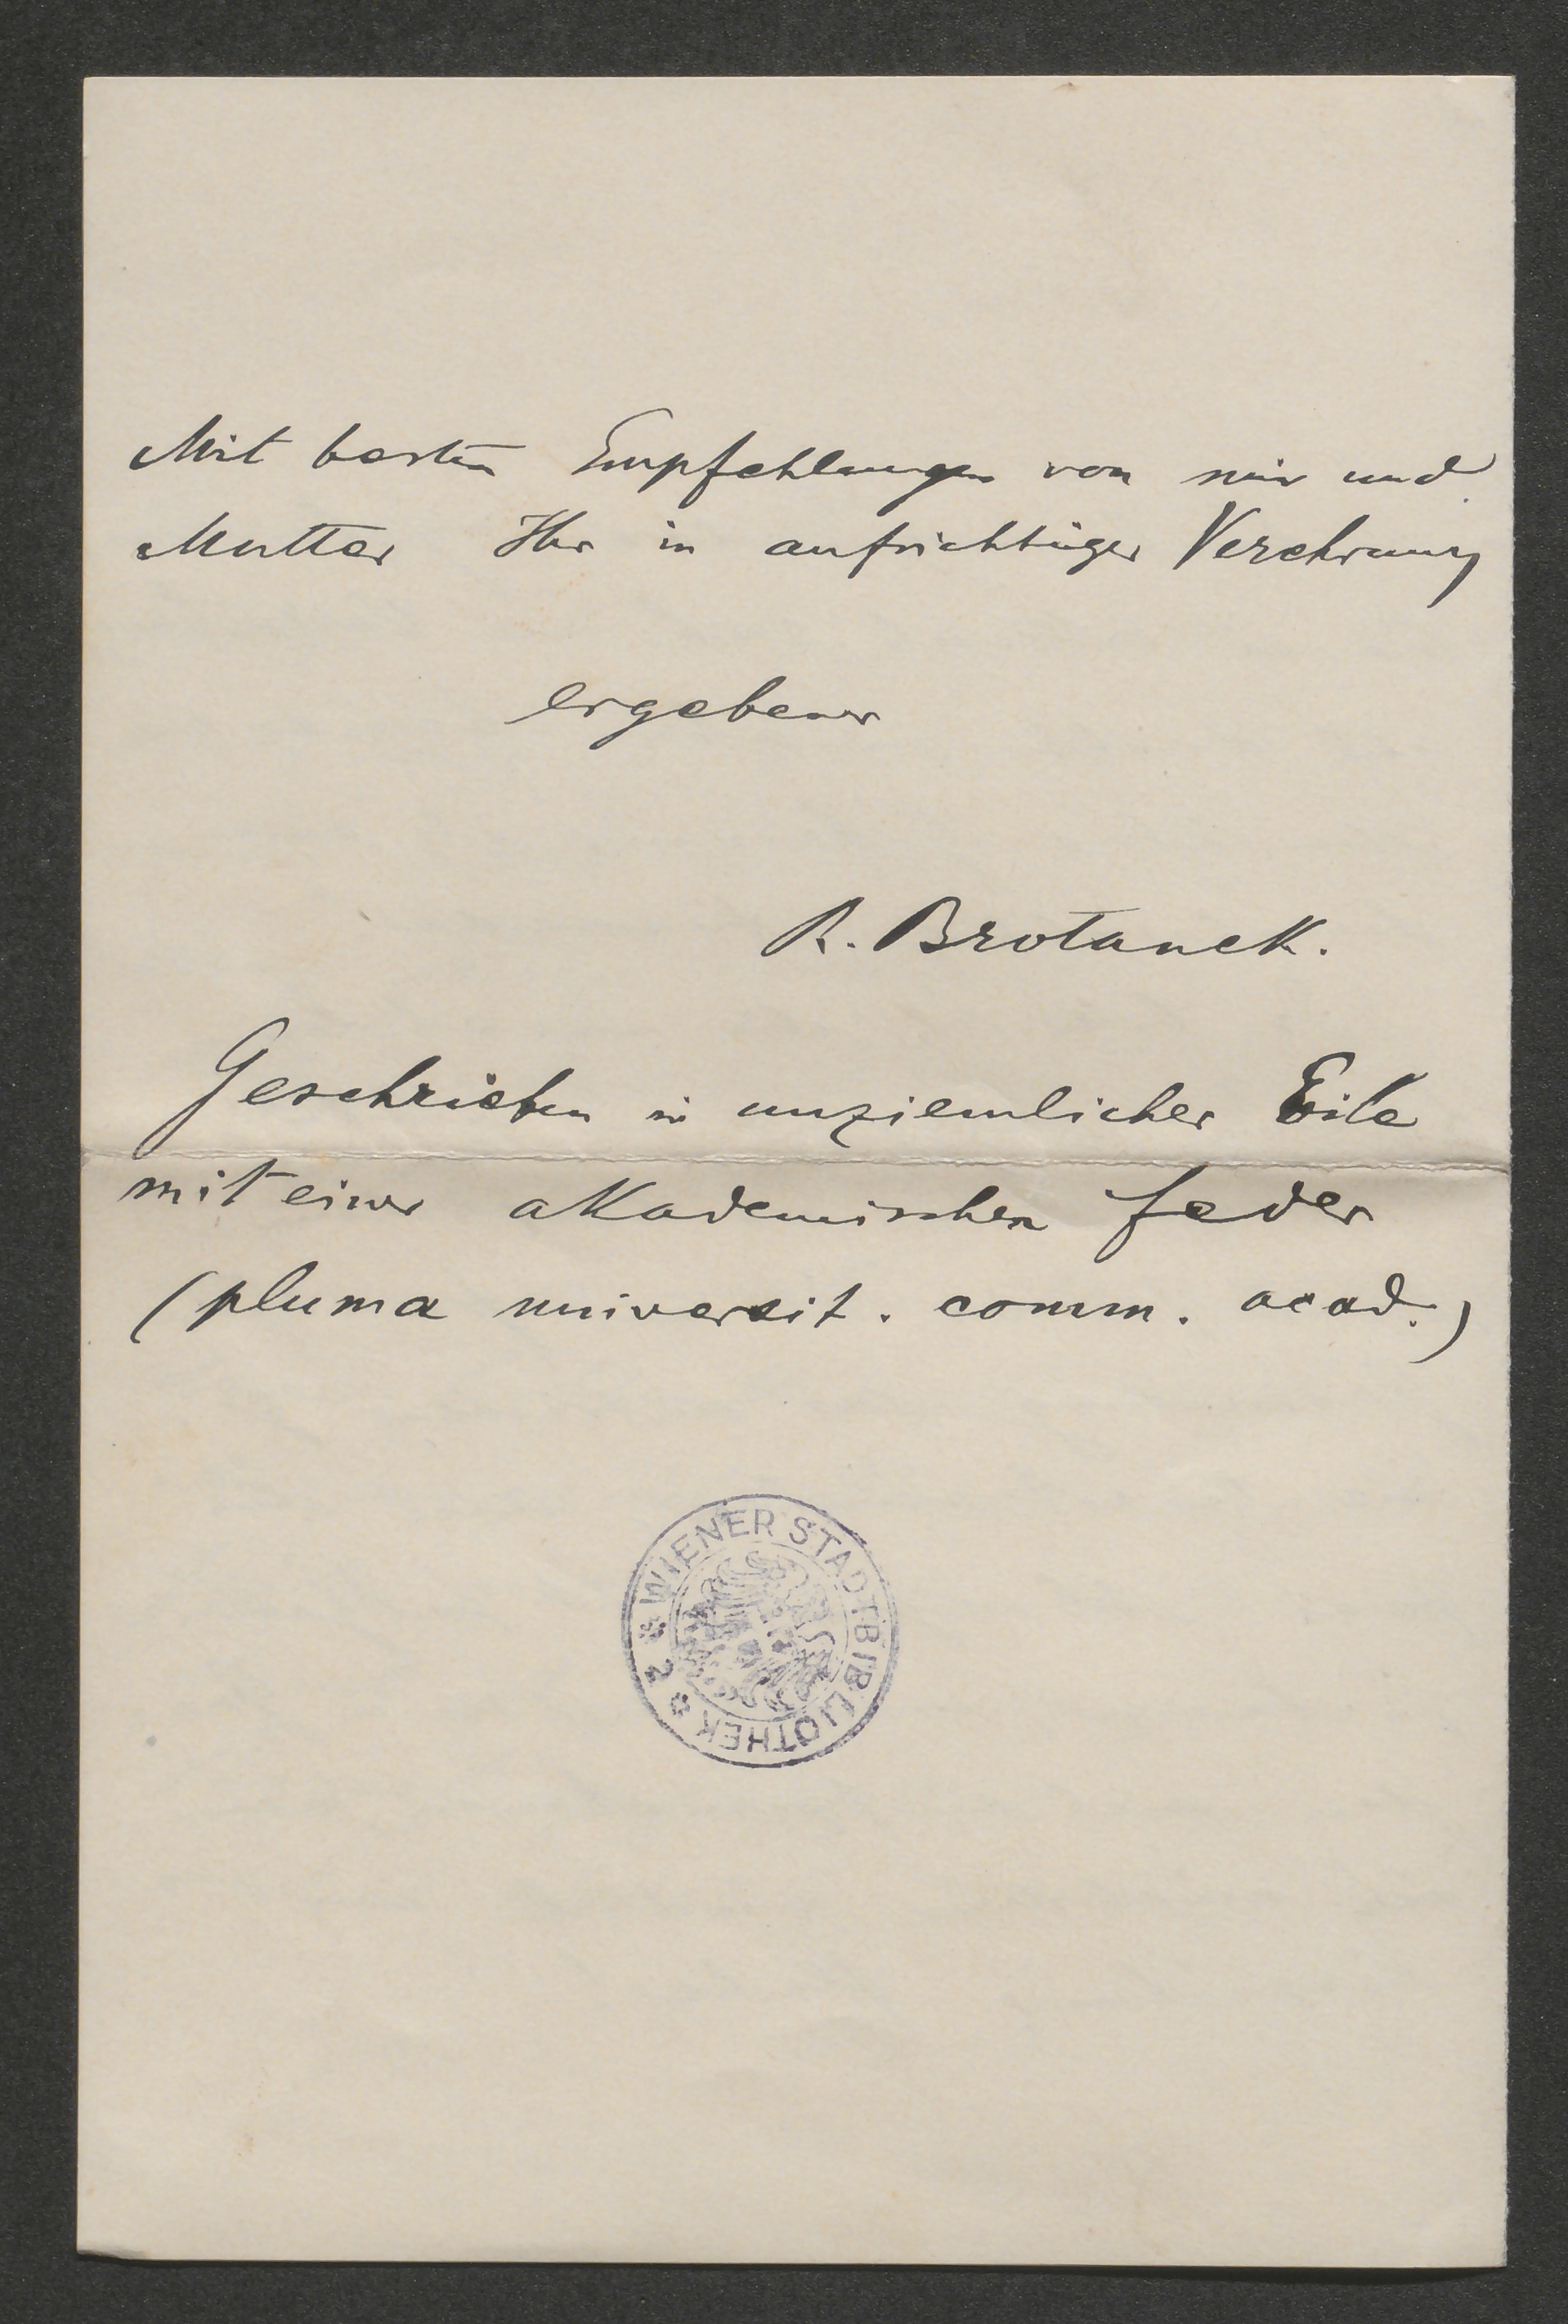 Mit besten Empfehlungen von mir und
Mutter Ihr in aufrichtiger Verehrung
ergebener
R. Brotanek.
Geschrieben in unziemlicher Eile
mit einer akademischen Feder
(pluma universit. comm. acad.)
WIENER STADTBIBLIOTHEK * 2 *